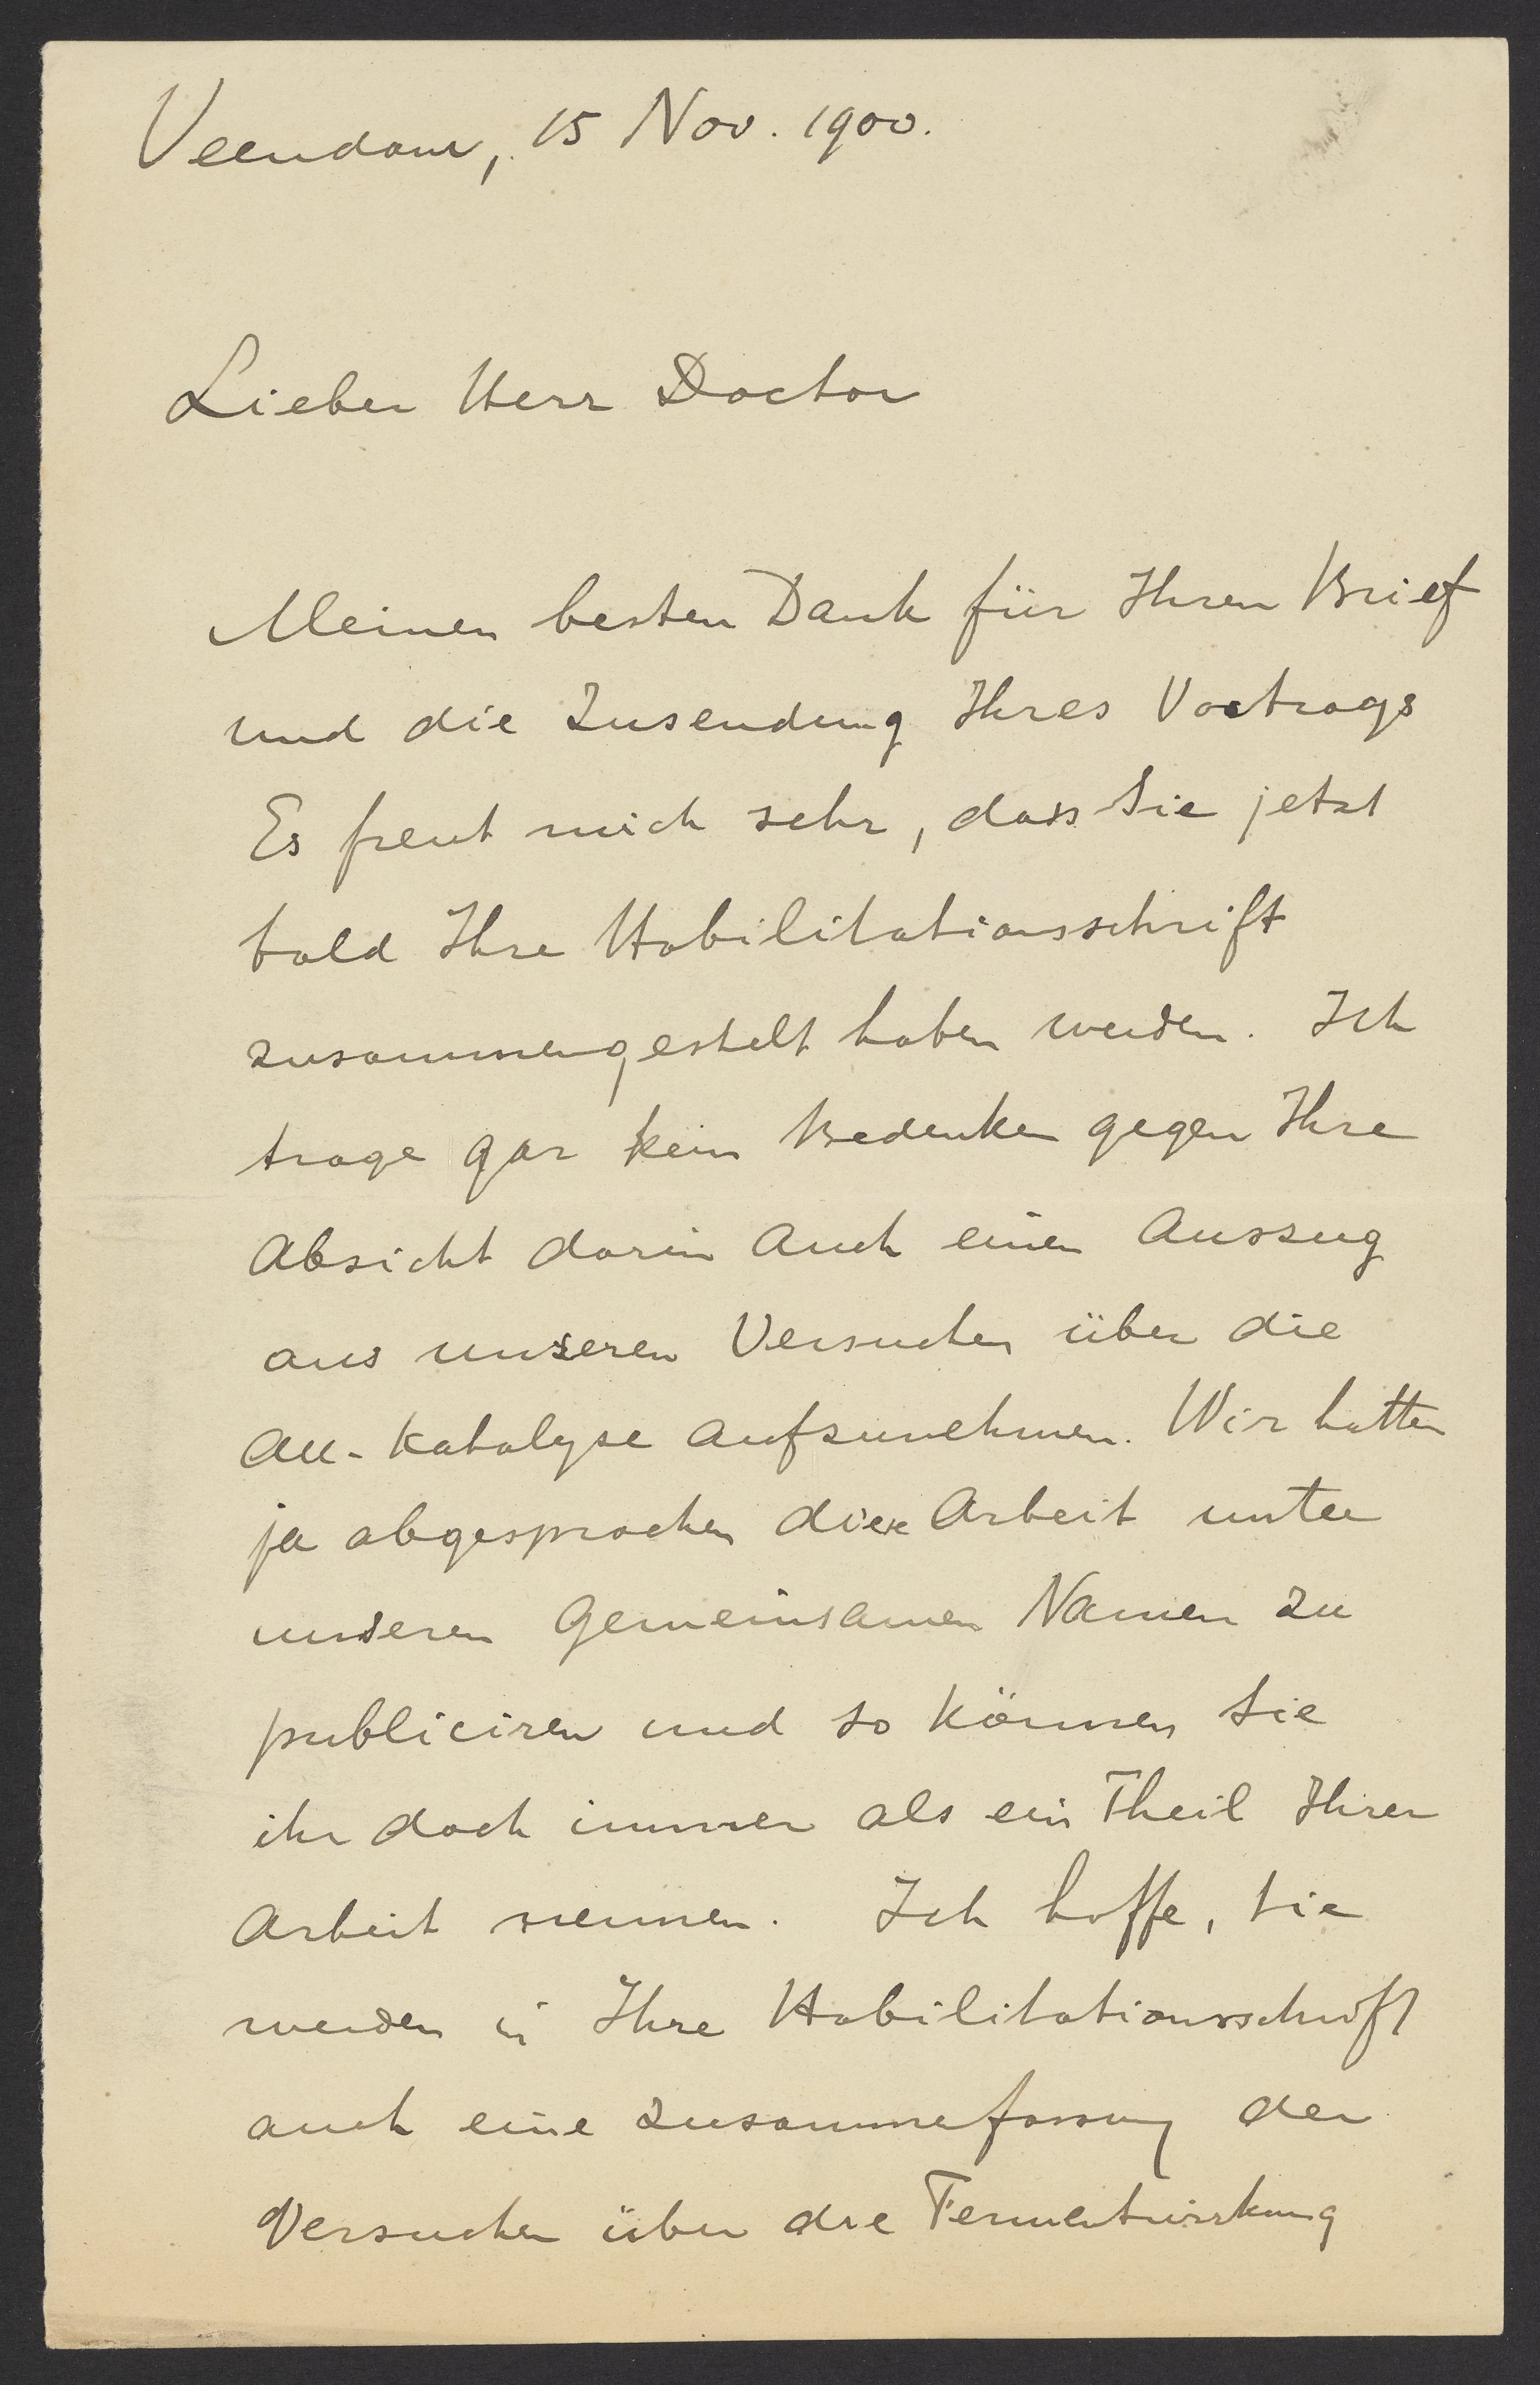 Veendam, 15 Nov. 1900.
Lieber Herr Doctor
Meinen besten Dank für Ihren Brief
und die Zusendung Ihres Vortrags
Es freut mich sehr, dass Sie jetzt
bald Ihre Habilitationsschrift
zusammengestelt haben werden. Ich
trage gar kein Bedenken gegen Ihre
Absicht darin auch einen Auszug
aus unseren Versuchen über die
Au-Katalyse aufzunehmen. Wir hatten
ja abgesprochen diese Arbeit unter
unseren gemeinsamen Namen zu
publiciren und so können Sie
ihr doch immer als ein Theil Ihrer
Arbeit nennen. Ich hoffe, Sie
werden in Ihre Habilitationsschrift
auch eine Zusammefassung der
Versuchen über die Fermentwirkung